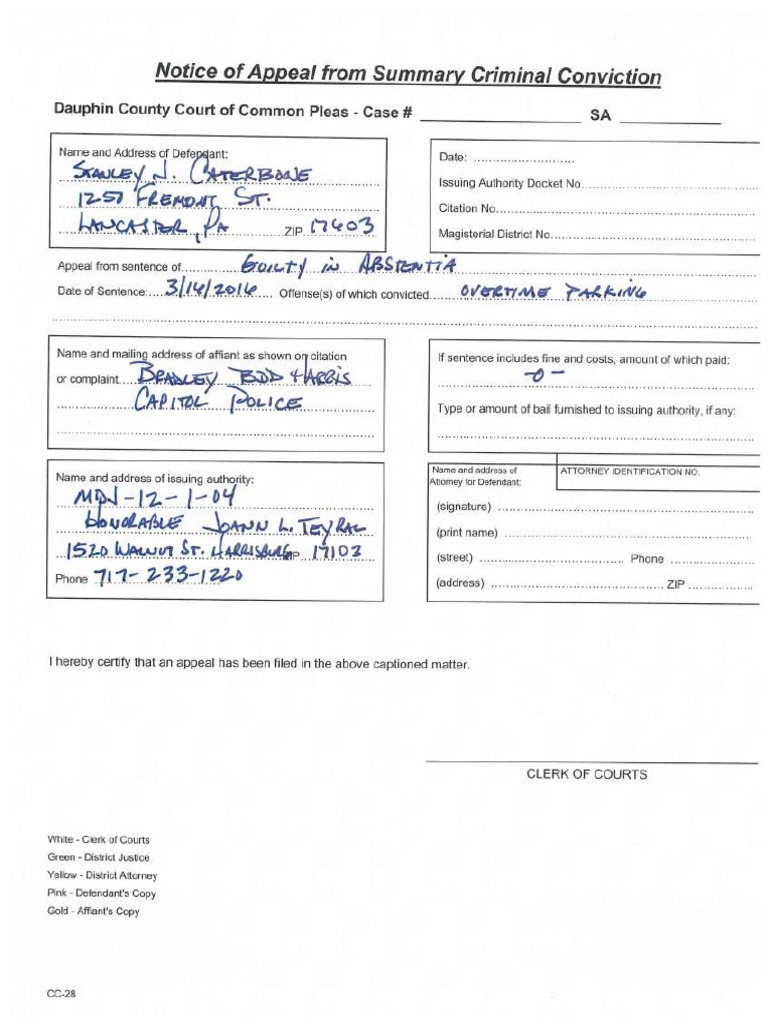 Notice of Appeal from Summary Criminal Conviction
Dauphin County Court of Common Pleas - Case # SA
Name and Address of Defendant:
STANLEY J. CATERBONE
1250 FREMONT ST.
LANCASTER, PA ZIP 17603
Date:
Issuing Authority Docket No.
Citation No.
Magisterial District No.
Appeal from sentence of GUILTY IN ABSTENTIA
Date of Sentence: 3/14/2016 Offense(s) of which convicted OVERTIME PARKING
Name and mailing address of affiant as shown on citation
or complaint BRADLEY HARRIS
CAPITOL POLICE
If sentence includes fine and costs, amount of which paid:
-0-
Type or amount of bail furnished to issuing authority, if any:
Name and address of issuing authority:
MDJ-12-1-04
HONORABLE JOANN L. TEYRAL
1520 WALNUT ST. HARRISBURG ZIP 17103
Phone 717-233-1220
Name and address of
Attorney for Defendant:
ATTORNEY IDENTIFICATION NO.
(signature)
(print name)
(street) Phone
(address) ZIP
I hereby certify that an appeal has been filed in the above captioned matter.
CLERK OF COURTS
White - Clerk of Courts
Green - District Justice
Yellow - District Attorney
Pink - Defendant's Copy
Gold - Affiant's Copy
CC-28